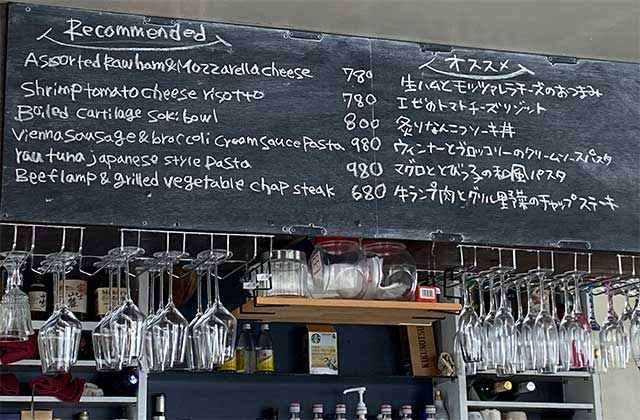 Recommended
Assorted Raw ham & Mozzarella cheese 780
Shrimp tomato cheese risotto 780
Boiled cartilage soki bowl 800
Vienna sausage & broccoli cream sauce pasta 980
raw tuna japanese style pasta 980
Beef lamp & grilled vegetable chap steak 680
オススメ
生ハムとモッツァレラチーズのおつまみ
エビのトマトチーズリゾット
炙りなんこつソーキ丼
ウィンナーとブロッコリーのクリームソースパスタ
マグロととびっ子の和風パスタ
牛ランプ肉とグリル野菜のチャップステーキ
STARBUCKS